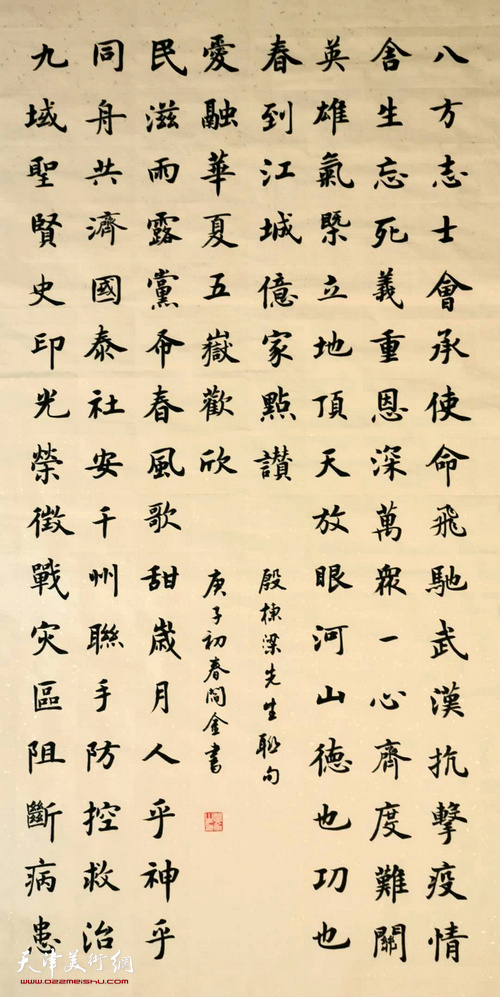 八方志士會承使命飛馳武漢抗擊疫情
舍生忘死義重恩深萬眾一心齊度難關
英雄氣槩立地頂天放眼河山德也功也
春到江城億家點讚
殷棟梁先生聯句
九域聖賢史印光榮徵戰灾區阻斷病患
同舟共濟國泰社安千州聯手防控救治
民滋雨露黨布春風歌甜歲月人乎神乎
愛融華夏五嶽歡欣
庚子初春閻金書
天津美術網
www.022meishu.com